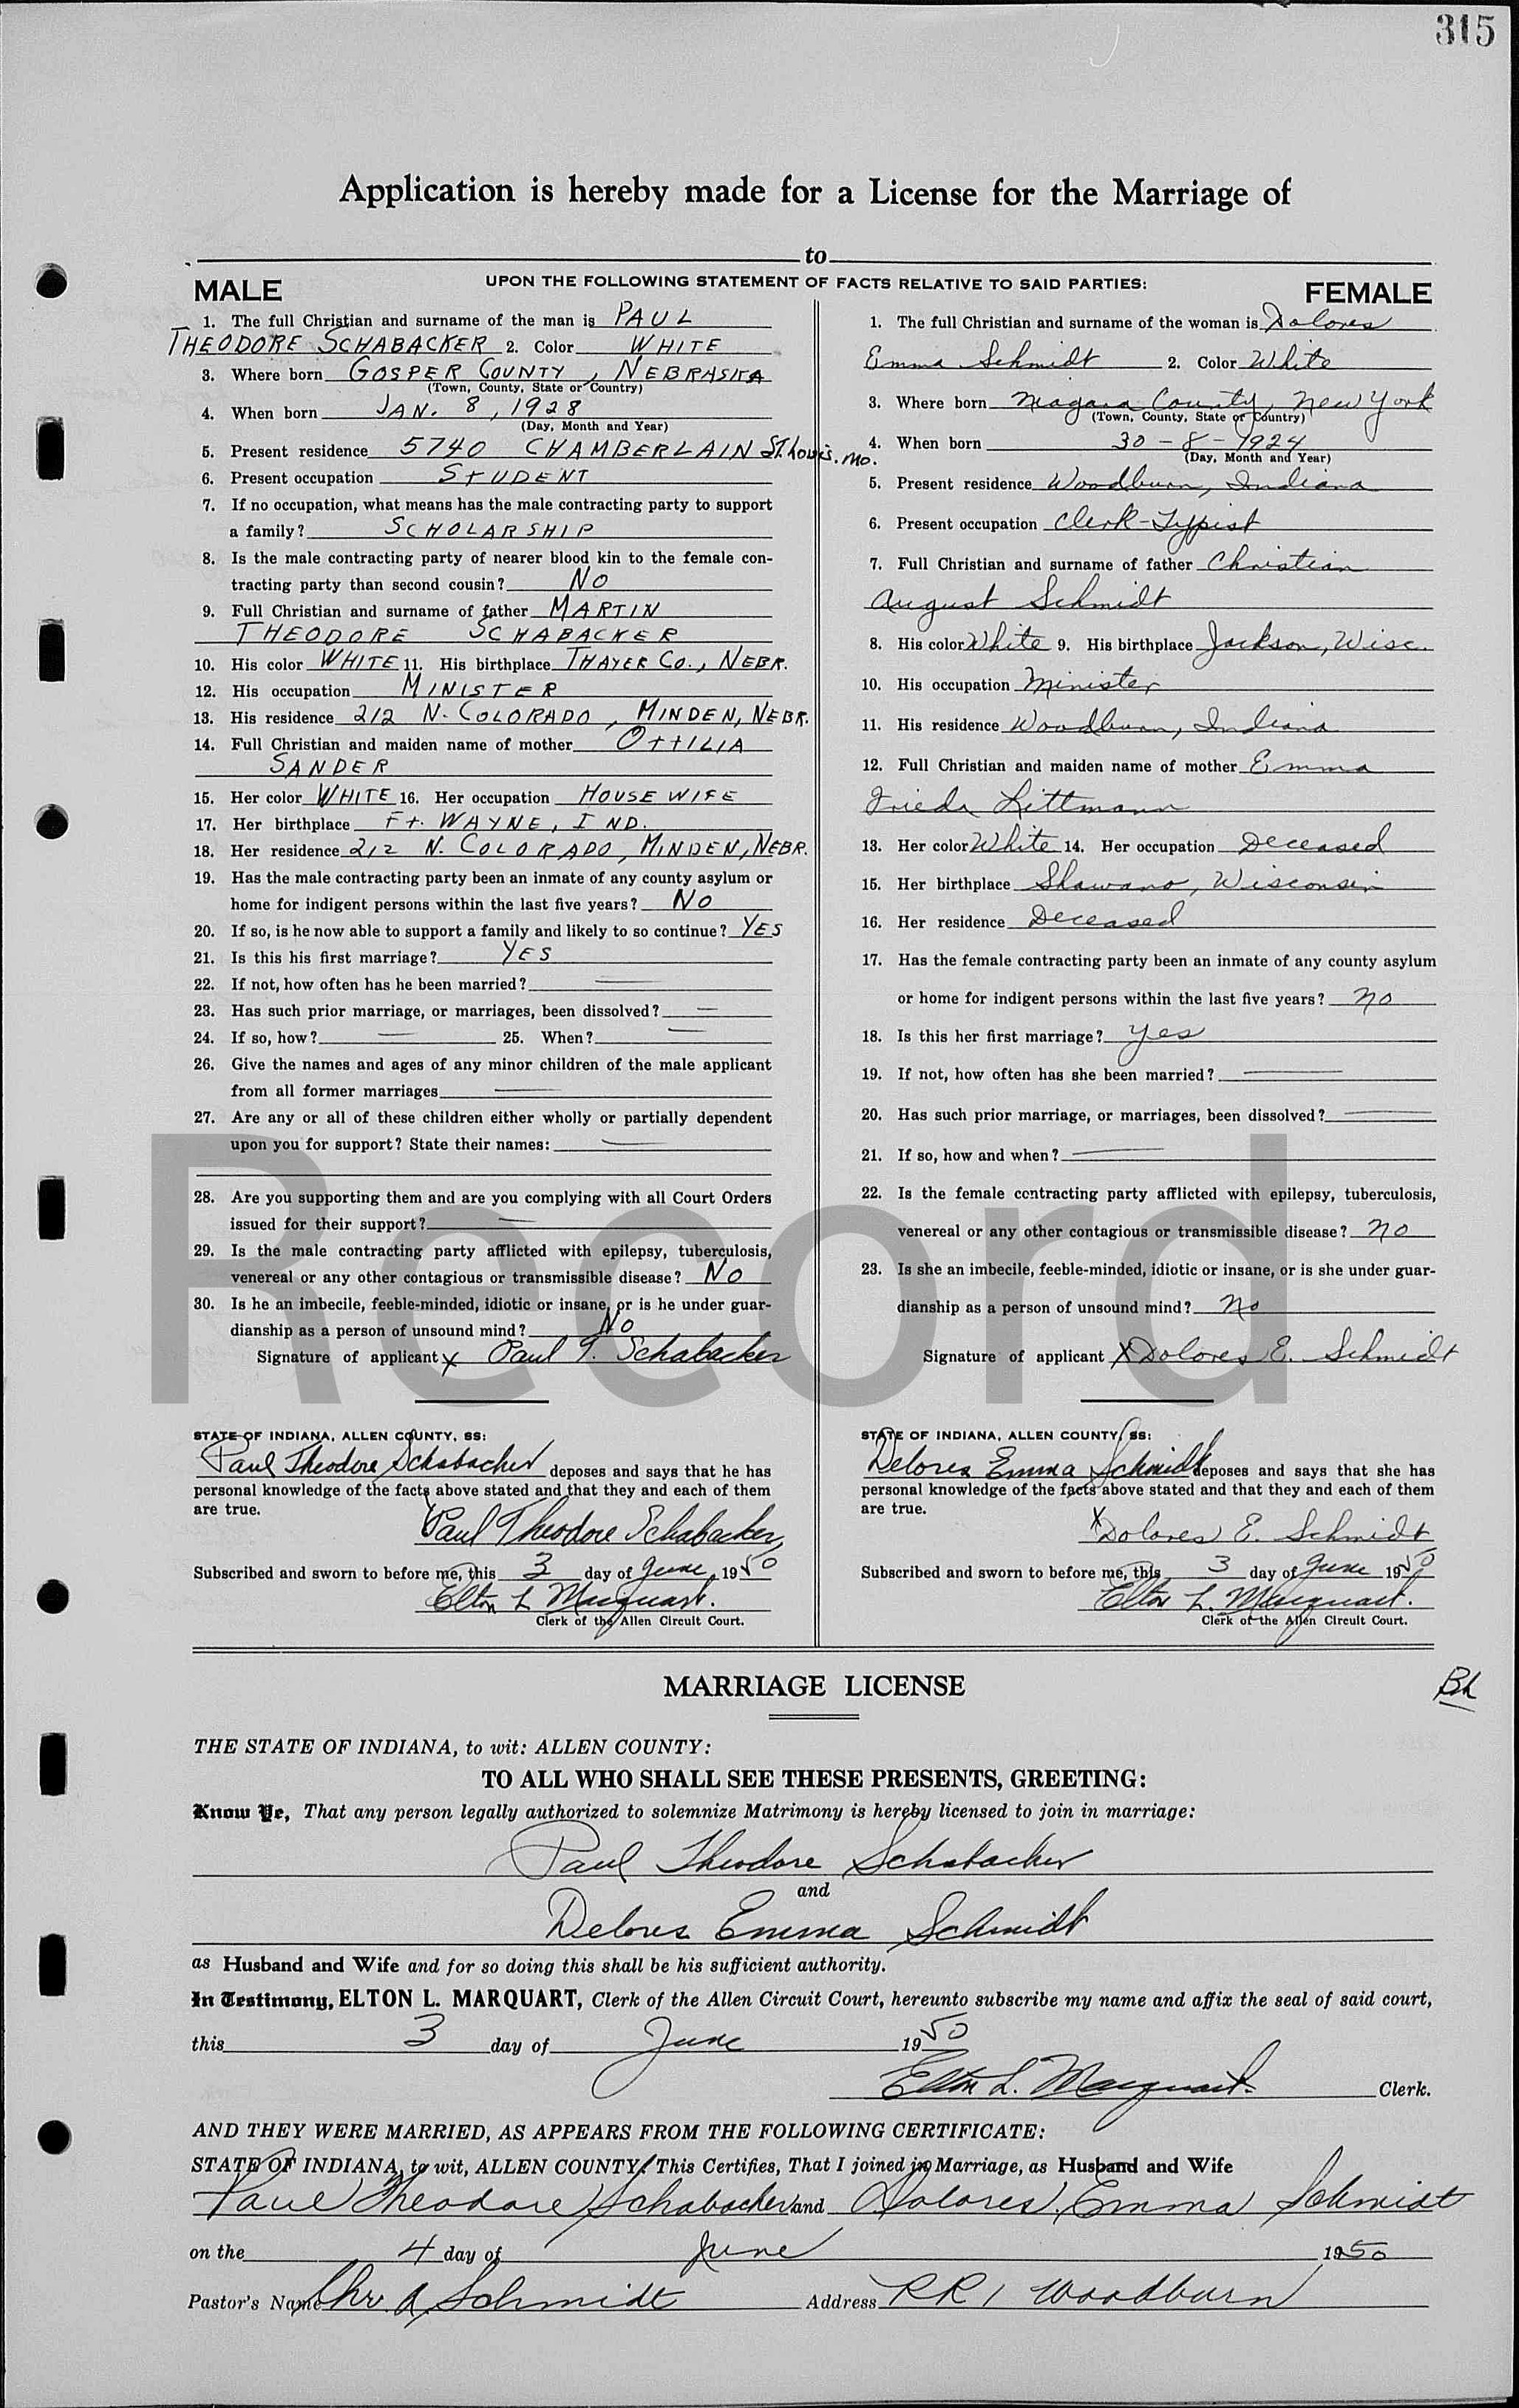 315
Application is hereby made for a License for the Marriage of
to
UPON THE FOLLOWING STATEMENT OF FACTS RELATIVE TO SAID PARTIES:
MALE
1. The full Christian and surname of the man is PAUL
THEODORE SCHABACKER 2. Color WHITE
3. Where born GOSPER COUNTY, NEBRASKA
(Town, County, State or Country)
4. When born JAN. 8, 1928
(Day, Month and Year)
5. Present residence 5740 CHAMBERLAIN ST. Louis. Mo.
6. Present occupation STUDENT
7. If no occupation, what means has the male contracting party to support
a family? SCHOLARSHIP
8. Is the male contracting party of nearer blood kin to the female con-
tracting party than second cousin? NO
9. Full Christian and surname of father MARTIN
THEODORE SCHABACKER
10. His color WHITE 11. His birthplace THAYER CO., NEBR.
12. His occupation MINISTER
13. His residence 212 N. COLORADO, MINDEN, NEBR.
14. Full Christian and maiden name of mother OTTILIA
SANDER
15. Her color WHITE 16. Her occupation HOUSEWIFE
17. Her birthplace FT. WAYNE, IND.
18. Her residence 212 N. COLORADO, MINDEN, NEBR.
19. Has the male contracting party been an inmate of any county asylum or
home for indigent persons within the last five years? NO
20. If so, is he now able to support a family and likely to so continue? YES
21. Is this his first marriage? YES
22. If not, how often has he been married? —
23. Has such prior marriage, or marriages, been dissolved? —
24. If so, how? — 25. When? —
26. Give the names and ages of any minor children of the male applicant
from all former marriages —
27. Are any or all of these children either wholly or partially dependent
upon you for support? State their names: —
28. Are you supporting them and are you complying with all Court Orders
issued for their support? —
29. Is the male contracting party afflicted with epilepsy, tuberculosis,
venereal or any other contagious or transmissible disease? NO
30. Is he an imbecile, feeble-minded, idiotic or insane, or is he under guar-
dianship as a person of unsound mind? NO
Signature of applicant X Paul T. Schabacker
STATE OF INDIANA, ALLEN COUNTY, SS:
Paul Theodore Schabacker deposes and says that he has
personal knowledge of the facts above stated and that they and each of them
are true.
Paul Theodore Schabacker
Subscribed and sworn to before me, this 3 day of June, 1950
Elton L Marquart.
Clerk of the Allen Circuit Court.
FEMALE
1. The full Christian and surname of the woman is Dolores
Emma Schmidt 2. Color White
3. Where born Niagara County, New York
(Town, County, State or Country)
4. When born 30-8-1924
(Day, Month and Year)
5. Present residence Woodburn, Indiana
6. Present occupation Clerk-Typist
7. Full Christian and surname of father Christian
August Schmidt
8. His color White 9. His birthplace Jackson, Wisc.
10. His occupation Minister
11. His residence Woodburn, Indiana
12. Full Christian and maiden name of mother Emma
Frieda Littmann
13. Her color White 14. Her occupation Deceased
15. Her birthplace Shawano, Wisconsin
16. Her residence Deceased
17. Has the female contracting party been an inmate of any county asylum
or home for indigent persons within the last five years? no
18. Is this her first marriage? yes
19. If not, how often has she been married? —
20. Has such prior marriage, or marriages, been dissolved? —
21. If so, how and when? —
22. Is the female contracting party afflicted with epilepsy, tuberculosis,
venereal or any other contagious or transmissible disease? no
23. Is she an imbecile, feeble-minded, idiotic or insane, or is she under guar-
dianship as a person of unsound mind? no
Signature of applicant X Dolores E. Schmidt
STATE OF INDIANA, ALLEN COUNTY, SS:
Delores Emma Schmidt deposes and says that she has
personal knowledge of the facts above stated and that they and each of them
are true.
X Dolores E. Schmidt
Subscribed and sworn to before me, this 3 day of June 1950
Elton L. Marquart.
Clerk of the Allen Circuit Court.
Record
MARRIAGE LICENSE
Bh
THE STATE OF INDIANA, to wit: ALLEN COUNTY:
TO ALL WHO SHALL SEE THESE PRESENTS, GREETING:
Know Ye, That any person legally authorized to solemnize Matrimony is hereby licensed to join in marriage:
Paul Theodore Schabacker
and
Delores Emma Schmidt
as Husband and Wife and for so doing this shall be his sufficient authority.
In Testimony, ELTON L. MARQUART, Clerk of the Allen Circuit Court, hereunto subscribe my name and affix the seal of said court,
this 3 day of June 1950
Elton L. Marquart. Clerk.
AND THEY WERE MARRIED, AS APPEARS FROM THE FOLLOWING CERTIFICATE:
STATE OF INDIANA, to wit, ALLEN COUNTY: This Certifies, That I joined in Marriage, as Husband and Wife
Paul Theodore Schabacker and Dolores Emma Schmidt
on the 4 day of June 1950
Pastor's Name Chr. A Schmidt Address RR 1 Woodburn